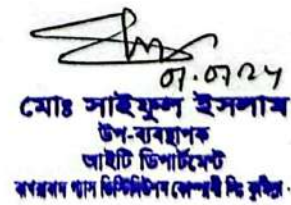 07.07.24
মোঃ সাইফুল ইসলাম
উপ-ব্যবস্থাপক
আইটি ডিপার্টমেন্ট
বাখরাবাদ গ্যাস ডিস্ট্রিবিউশন কোম্পানী লিঃ কুমিল্লা।